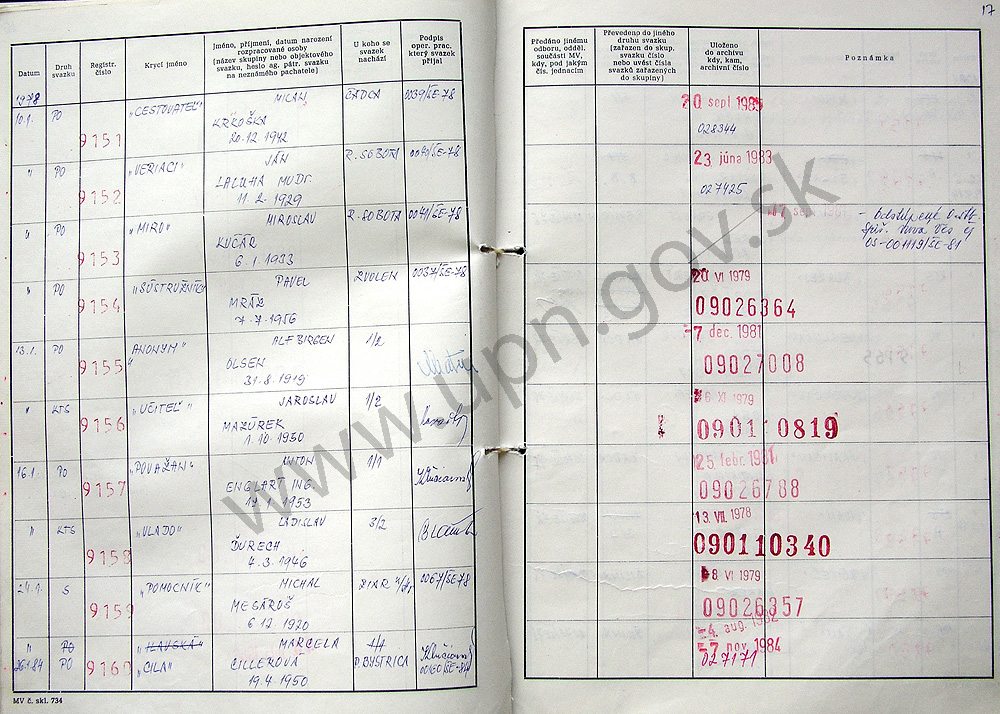 17
Datum
Druh svazku
Registr. číslo
Krycí jméno
Jméno, příjmení, datum narození
rozpracované osoby
(název skupiny nebo objektového
svazku, heslo ag. pátr. svazku
na neznámého pachatele)
U koho se
svazek
nachází
Podpis
oper. prac.
který svazek
přijal
Předáno jinému
odboru, odděl.
součásti MV,
kdy, pod jakým
čís. jednacím
Převedeno do jiného
druhu svazku
(zařazen do skup.
svazku číslo
nebo uvést čísla
svazků zařazených
do skupiny)
Uloženo
do archivu
kdy, kam,
archivní číslo
Poznámka
1978
10.1. PO 9151 „CESTOVATEĽ" MICHAL ČADCA 0039/ŠE-78
KRKOŠKA
20.12.1942
20 sept 1985
028344
" PO 9152 „VERIACI" JÁN R. SOBOTA 0040/ŠE-78
LALUHA MUDr.
11. 2. 1929
23 júna 1983
027425
" PO 9153 „MIRO" MIROSLAV R. SOBOTA 0041/ŠE-78
KUČÁR
6. 1. 1933
- Odstúpené
Spiš. Nová Ves čj
OS-00119/ŠE-81
" PO 9154 „SÚSTRUŽNÍK" PAVEL ZVOLEN 0037/ŠE-78
MRÁZ
7.7.1956
20 VI 1979
09026364
13.1. PO 9155 „ANONYM" ALF BIRGEN 1/2
OLSEN
31.8.1919
-7 dec. 1981
09027008
" KTS 9156 „UČITEĽ" JAROSLAV 1/2
MAZÚREK
1.10.1930
6 XI 1979
090110819
16.1. PO 9157 „POVAŽAN" ANTON 1/1
ENGLART ING.
1953
25 febr. 1981
09026788
" KTS 9158 „VLADO" LADISLAV 3/2
ĎURECH
4.3.1946
13. VII. 1978
090110340
24.1. S 9159 „POMOCNÍK" MICHAL ŽIAR n/Hr 0067/ŠE-78
MESÁROŠ
6.12.1920
8 VI 1979
09026357
" PO 9160 MARCELA 1/1
26.1.84 PO „CILA" CILLEROVÁ P. BYSTRICA
19.4.1950
-4. aug. 1982
-7 nov. 1984
027171
MV č. skl. 734
www.upn.gov.sk